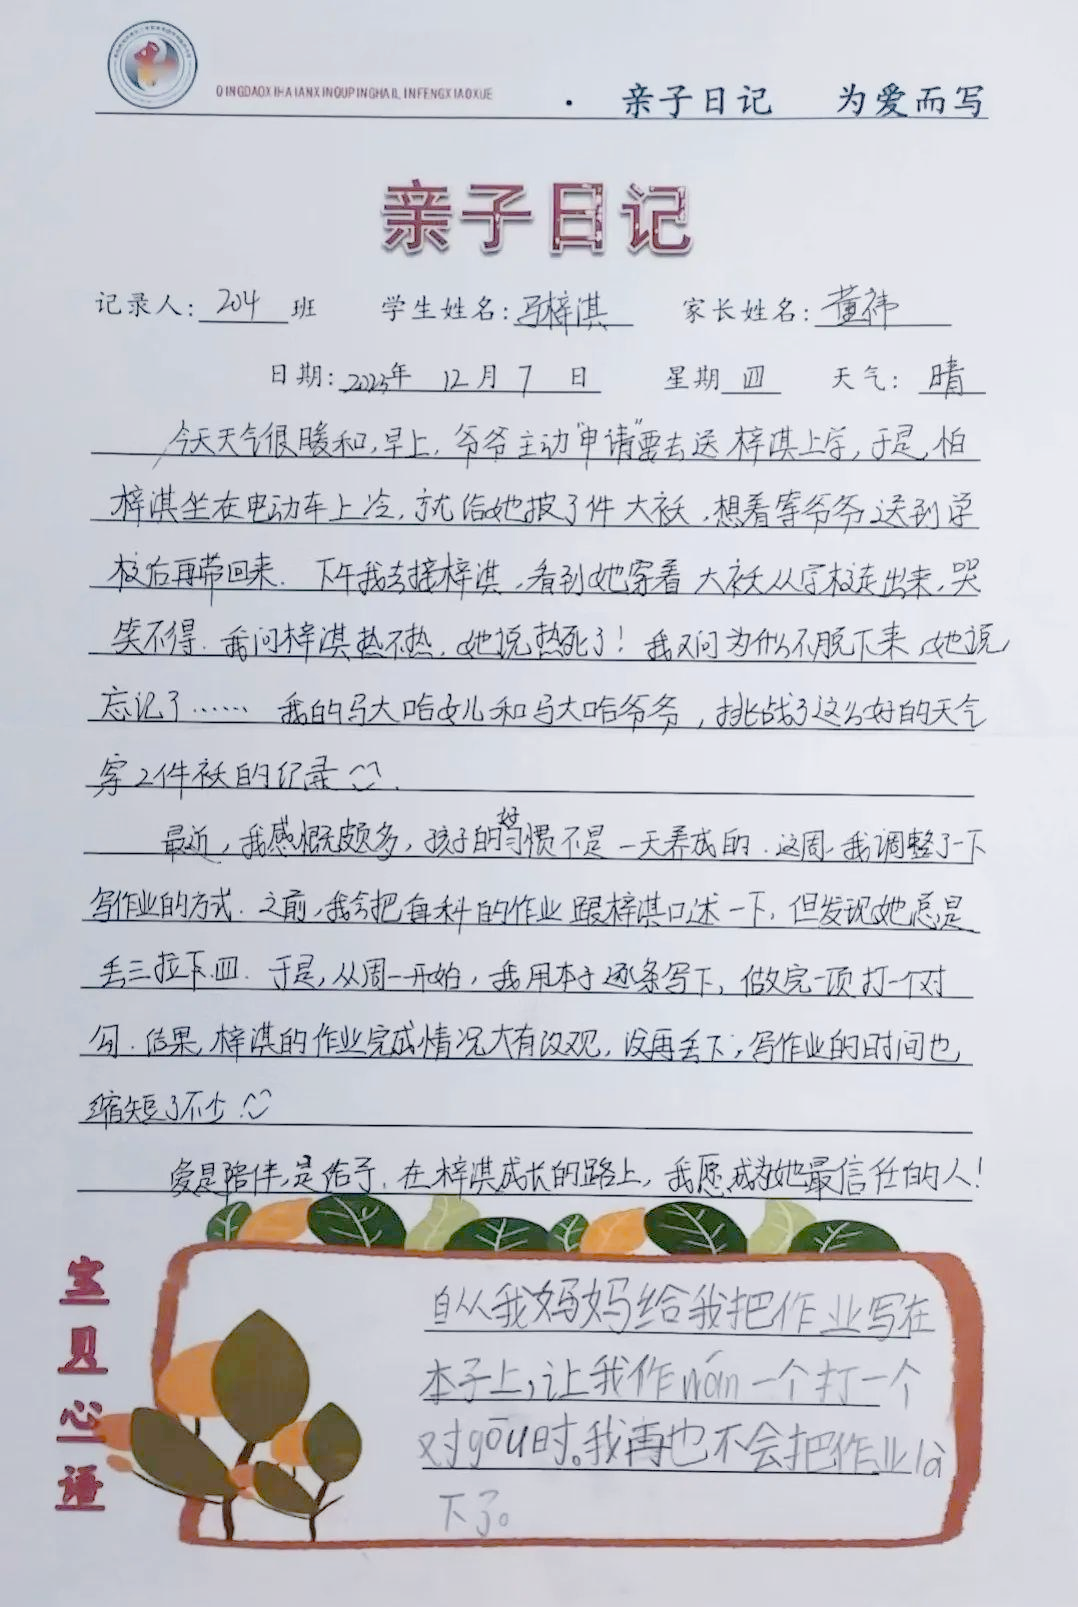 QINGDAOXIHAIANXINQUPINGHAILINFENGXIAOXUE
· 亲子日记 为爱而写
亲子日记
记录人: 204 班 学生姓名: 马梓淇 家长姓名: 董祎
日期: 2023年 12月 7 日 星期 四 天气: 晴
今天天气很暖和,早上,爷爷主动“申请”要去送梓淇上学,于是,怕
梓淇坐在电动车上冷,就给她披了件大袄,想着等爷爷送到学
校后再带回来. 下午我去接梓淇,看到她穿着大袄从学校走出来,哭
笑不得. 我问梓淇热不热,她说热死了! 我又问为什么不脱下来,她说
忘记了…… 我的马大哈女儿和马大哈爷爷,挑战了这么好的天气
穿2件袄的记录.
最近,我感慨颇多,孩子的好习惯不是一天养成的.这周,我调整了一下
写作业的方式. 之前,我会把每科的作业跟梓淇口述一下,但发现她总是
丢三拉下四. 于是,从周一开始,我用本子逐条写下,做完一项打一个对
勾.结果,梓淇的作业完成情况大有改观,没再丢下,写作业的时间也
缩短了不少.
爱是陪伴,是给予.在梓淇成长的路上,我愿成为她最信任的人!
宝贝心语
自从我妈妈给我把作业写在
本子上,让我作wán一个打一个
对gōu时。我再也不会把作业là
下了。